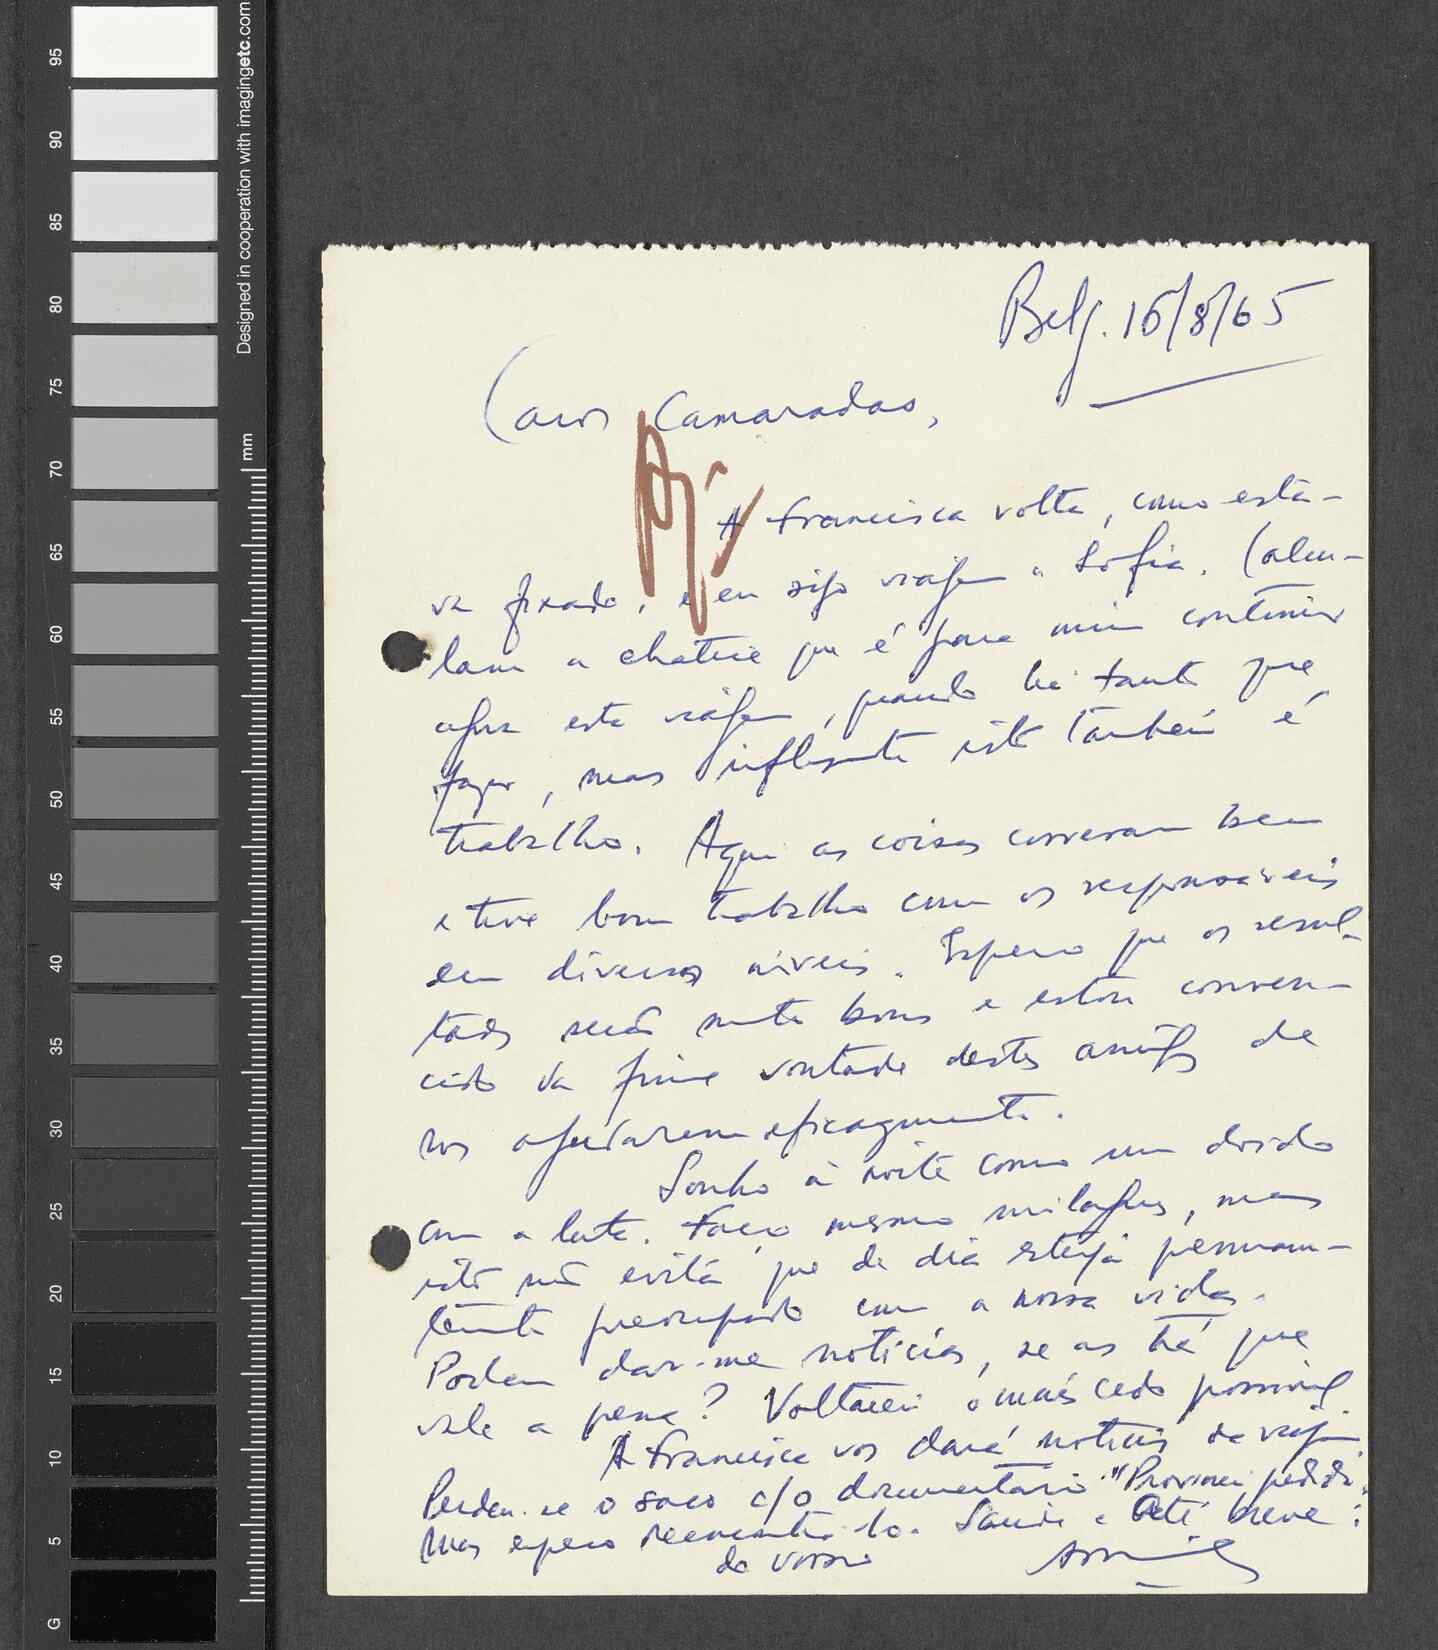 95
90
85
80
75
70
65
60
55
50
45
40
35
30
25
20
15
10
5
G
Designed in cooperation with imagingetc.com
mm
Belg. 16/8/65
Caros Camaradas,
A Francisca volta, como esta-
va fixado, e eu sigo viagem a Sofia. Calcu-
lam a chatice que é para mim continuar
agora esta viagem, quando há tanto que
fazer, mas infelizmente isto também é
trabalho. Aqui as coisas correram bem
e tive bom trabalho com os responsáveis
em diversos níveis. Espero que os resul-
tados serão muito bons e estou conven-
cido da firme vontade destes amigos de
nos ajudarem eficazmente.
Sonho à noite como um doido
com a luta. Faço mesmo milagres, mas
isto não evita que de dia esteja permanen-
temente preocupado com a nossa vida.
Podem dar-me notícias, se as há que
vale a pena? Voltarei o mais cedo possível.
A Francisca vos dará notícias da viagem.
Perdeu-se o saco c/o documentário
Mas espero reencontrá-lo. Saúde e até breve:
do vosso